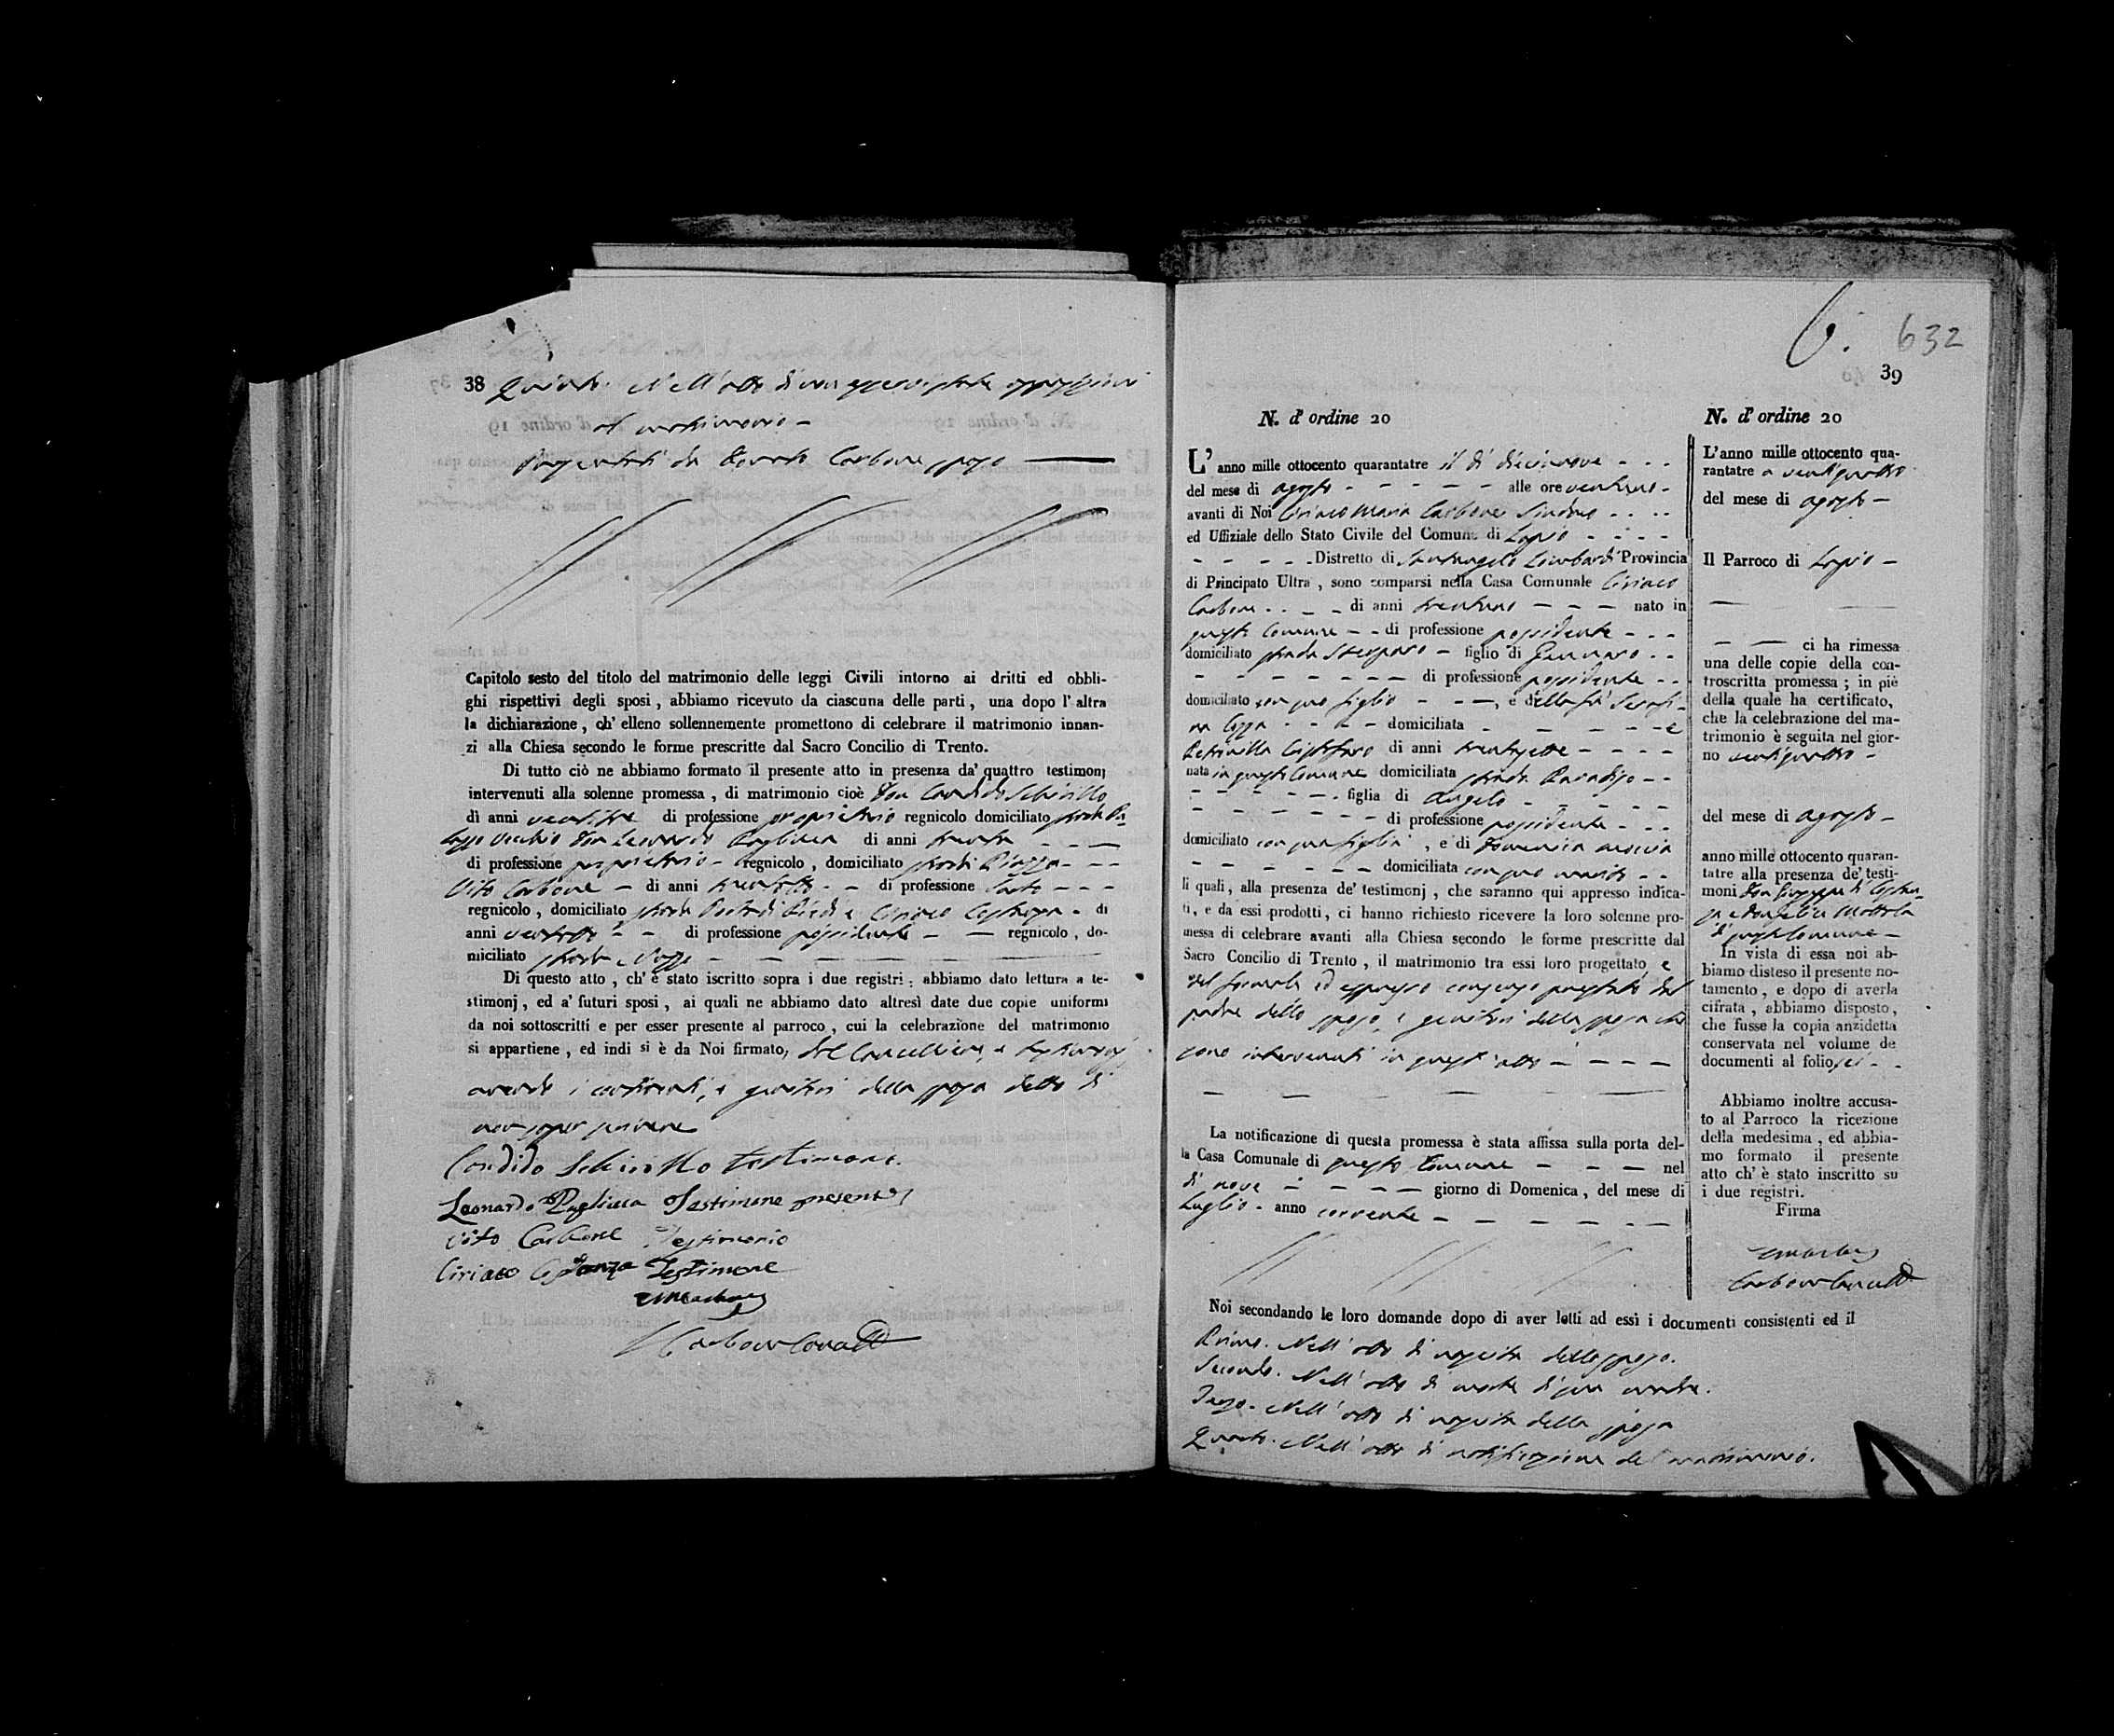 38 Quinto. Nell'atto di non esservi state opposizioni
al matrimonio -
presentati da Donato Carbone sposo
Capitolo sesto del titolo del matrimonio delle leggi Civili intorno ai dritti ed obbli-
ghi rispettivi degli sposi, abbiamo ricevuto da ciascuna delle parti, una dopo l'altra
la dichiarazione, ch'elleno sollennemente promettono di celebrare il matrimonio innan-
zi alla Chiesa secondo le forme prescritte dal Sacro Concilio di Trento.
Di tutto ciò ne abbiamo formato il presente atto in presenza da' quattro testimonj
intervenuti alla solenne promessa, di matrimonio cioè Don Candido Schirillo
di anni ventitre di professione proprietario regnicolo domiciliato strada Pa-
lazzo Vecchio Don Leonardo Pagliuca di anni trenta - - -
di professione proprietario - regnicolo, domiciliato strada Piazza - - -
Vito Carbone - di anni trentotto - - di professione Sarto - - -
regnicolo, domiciliato strada Ciriaco Costanza - di
anni ventotto - - di professione possidente - - regnicolo, do-
miciliato strada
Di questo atto, ch'è stato iscritto sopra i due registri: abbiamo dato lettura a te-
stimonj, ed a' futuri sposi, ai quali ne abbiamo dato altresì date due copie uniformi
da noi sottoscritti e per esser presente al parroco, cui la celebrazione del matrimonio
si appartiene, ed indi si è da Noi firmato, dal Cancelliere, e testimonj
avendo i contraenti, e genitori della sposa detto di
non saper scrivere
Candido Schirillo testimone.
Leonardo Pagliuca Testimone presente
Vito Carbone Testimonio
Ciriaco Costanza Testimone
6. 632
39
N. d'ordine 20
L'anno mille ottocento quarantatre il dì diecinove - - -
del mese di agosto - - - - - alle ore ventuno -
avanti di Noi Ciriaco Maria Carbone Sindaco - - - -
ed Uffiziale dello Stato Civile del Comune di Lapio - - - -
- - - - - Distretto di Santangelo Lombardi Provincia
di Principato Ultra, sono comparsi nella Casa Comunale Ciriaco
Carbone - - - - di anni trentuno - - - nato in
questo Comune - - di professione possidente - - -
domiciliato strada - figlio di Gennaro - -
- - - - - - - di professione possidente - -
domiciliato con suo figlio - - -, e della fu Serafi-
na Cozza - - - - domiciliata - - - - - - e
Petronilla Cristofaro di anni trentasette - - - -
nata in questo Comune domiciliata strada Paradiso - -
- - - - - - figlia di Angelo - - - - -
- - - - - - - di professione possidente - - -
domiciliato con sua figlia, e di Domenica
- - - - - domiciliata con suo marito - -
li quali, alla presenza de' testimonj, che saranno qui appresso indica-
ti, e da essi prodotti, ci hanno richiesto ricevere la loro solenne pro-
messa di celebrare avanti alla Chiesa secondo le forme prescritte dal
Sacro Concilio di Trento, il matrimonio tra essi loro progettato, e
del formale ed espresso consenso prestato dal
padre dello sposo, e genitori della sposa che
sono intervenuti in quest'atto - - - -
La notificazione di questa promessa è stata affissa sulla porta del-
la Casa Comunale di questo Comune - - - - nel
dì nove - - - - - giorno di Domenica, del mese di
Luglio - anno corrente - - - - - - -
Noi secondando le loro domande dopo di aver letti ad essi i documenti consistenti ed il
Primo. Nell'atto di nascita dello sposo.
Secondo. Nell'atto di morte di sua madre.
Terzo. Nell'atto di nascita della sposa
Quarto. Nell'atto di notificazione del matrimonio.
N. d'ordine 20
L'anno mille ottocento qua-
rantatre a ventiquattro
del mese di agosto -
Il Parroco di Lapio -
ci ha rimessa
una delle copie della con-
troscritta promessa; in piè
della quale ha certificato,
che la celebrazione del ma-
trimonio è seguita nel gior-
no ventiquattro -
del mese di agosto -
anno mille ottocento quaran-
tatre alla presenza de' testi-
moni Don Giuseppe di Costan-
za e Don Felice Mottola
di questo Comune -
In vista di essa noi ab-
biamo disteso il presente no-
tamento, e dopo di averla
cifrata, abbiamo disposto,
che fusse la copia anzidetta
conservata nel volume de
documenti al folio sei - -
Abbiamo inoltre accusa-
to al Parroco la ricezione
della medesima, ed abbia-
mo formato il presente
atto ch'è stato inscritto su
i due registri.
Firma